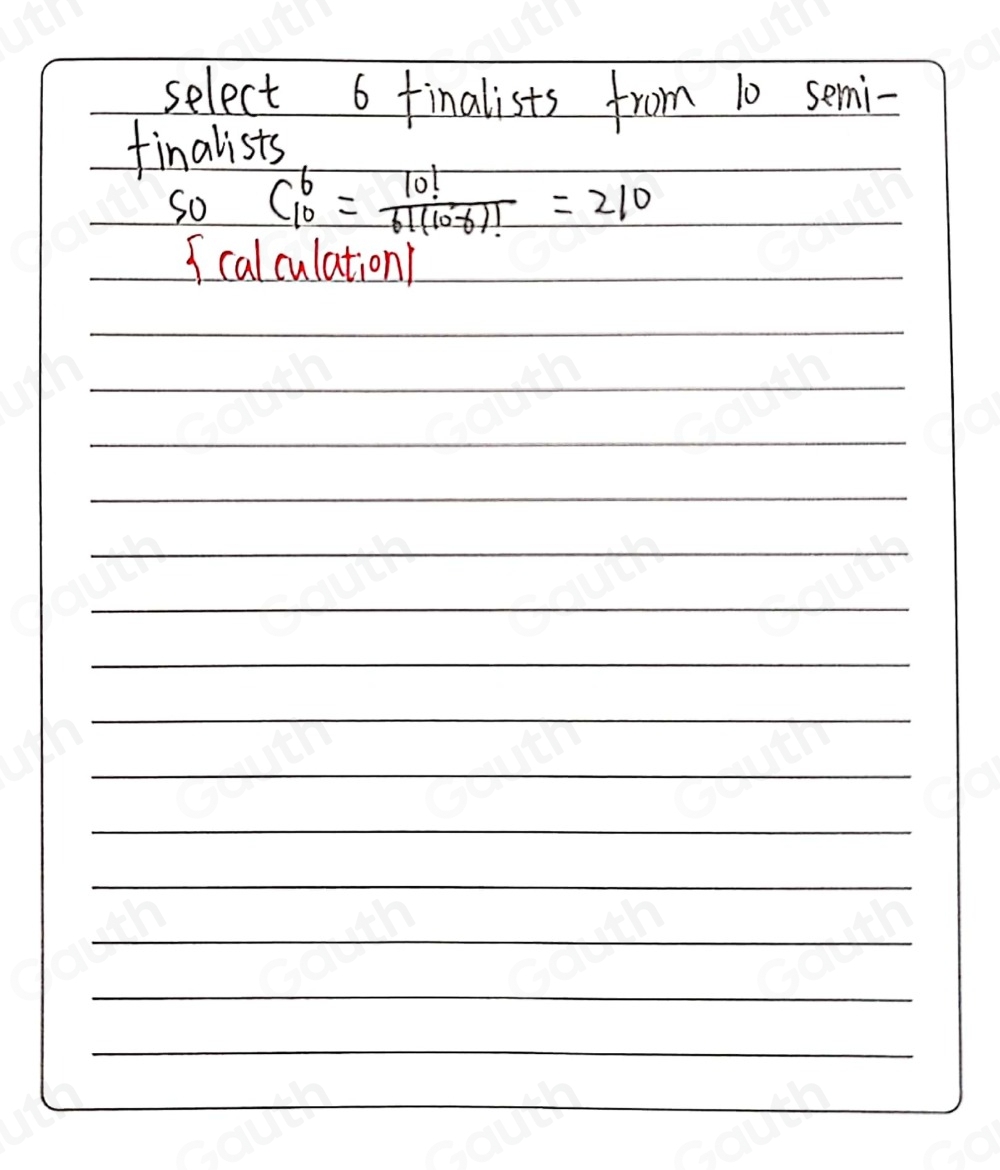 select 6 finalists from 10 semi-
finalists
so C₁₀⁶ = 10!/6!(10-6)! = 210
{calculation}